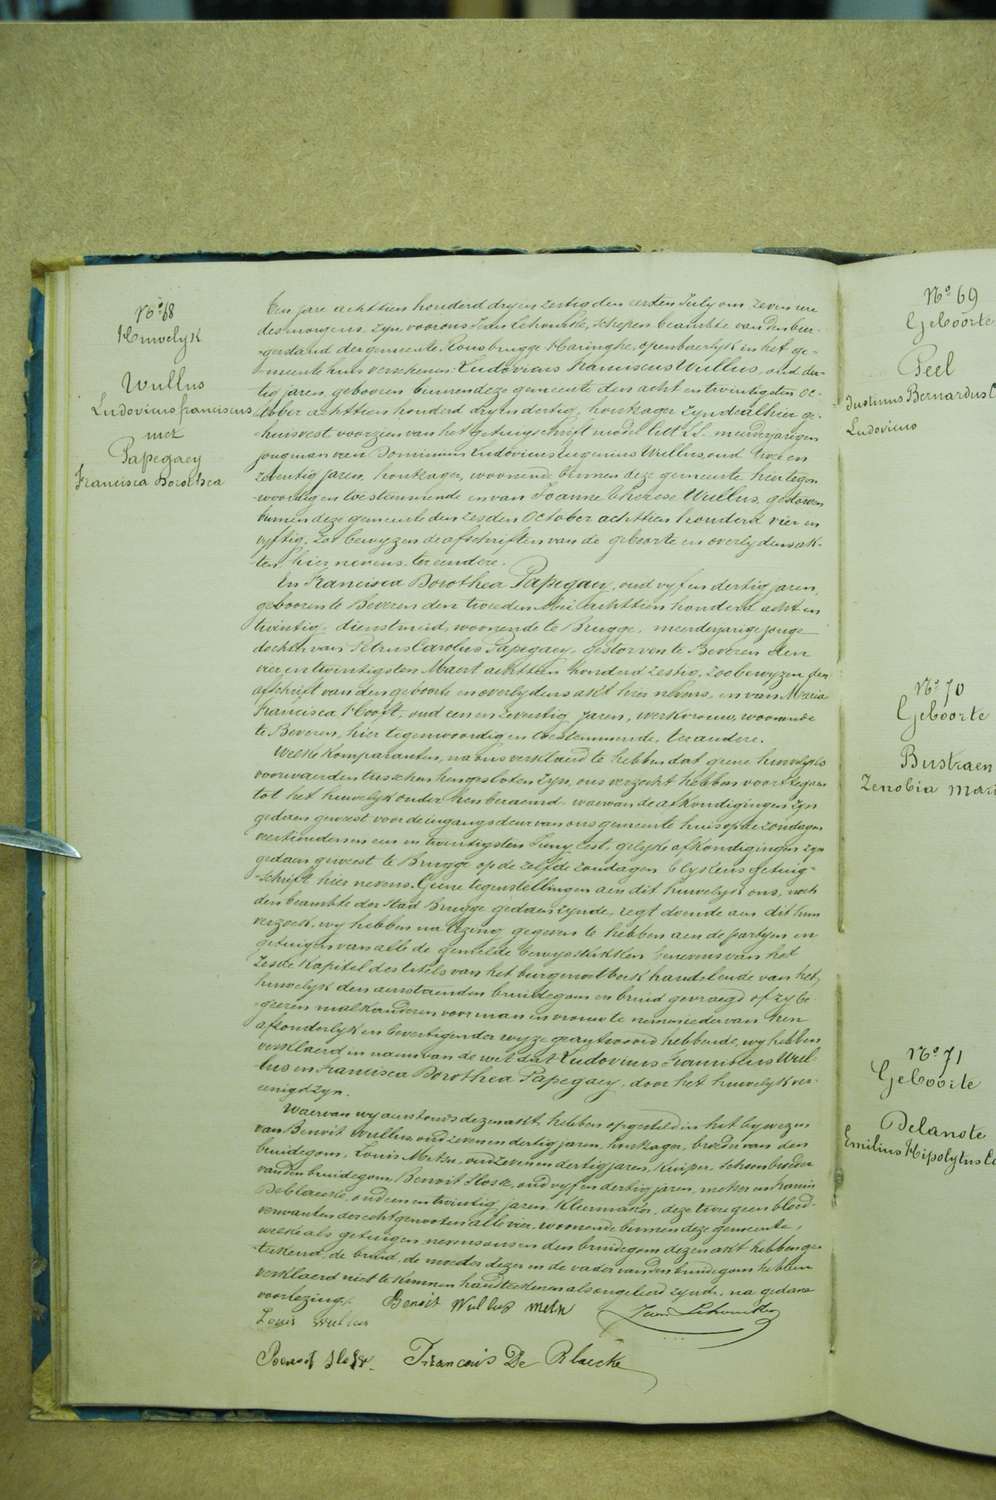 N° 68
Huwelyk
Wullus
Ludovicus franciscus
met
Papegaey
Francisca Dorothea
Ten jare achttien honderd dry en zestig den eersten July om zeven ure
des morgens, zyn voor ons Jean Schoutte, schepen beambte van den bur-
-gerstand der gemeente Rousbrugge Haringhe, openbaerlyk in het ge-
meente huis verschenen Ludovicus Franciscus Wullus, oud der-
tig jaren, geboren binnen deze gemeente den acht en twintigsten oc-
tober achttien honderd dry en dertig, houtzager zynde alhier ge-
huisvest voorzien van het getuigschrift model litt. LL. meerderjarigen
jongman van Dominicus Ludovicus Eugenius Wullus, oud twee en
zeventig jaren, houtzager, woonende binnen deze gemeente hier tegen
woordig en toestemmende en van Joanne Therese Wullus, gestorven
binnen deze gemeente den zesden October achttien honderd vier en
vyftig, zoo bewyzen de afschriften van de geboorte en overlydens ak-
ten hier nevens, ter eendere.
En Francisca Dorothea Papegaey, oud vyf en dertig jaren,
geboren te Beveren den tweeden Mei achttien honderd acht en
twintig, dienstmeid, woonende te Brugge, meerderjarige jonge
dochter van Petrus Carolus Papegaey, gestorven te Beveren den
vier en twintigsten Maert achttien honderd zestig, zoo bewyzen den
afschrift van den geboorte en overlydens akt hier nevens, en van Maria
Francisca Hooft, oud een en zeventig jaren, werkvrouw, woonende
te Beveren, hier tegenwoordig en toestemmende, ter andere.
Welke komparanten, na ons verklaerd te hebben dat geene huwelyks
voorwaerden tusschen hen gesloten zyn, ons verzocht hebben voort te gaen
tot het huwelyk onder hen beraemd, waervan de afkondigingen zyn
gedaen geweest voor de ingangs deur van ons gemeente huis op de zondagen
veertienden en een en twintigsten Juny lest, gelyke afkondigingen zyn
gedaen geweest te Brugge op de zelfde zondagen blykens getuig-
-schrift hier nevens. Geene tegenstellingen aen dit huwelyk ons, noch
den beambte der stad Brugge gedaen zynde, regt doende aen dit hun
verzoek, wy hebben na lezing gegeven te hebben aen de partyen en
getuigen van alle de gemelde bewysstukken benevens van het
zesde kapitel des titels van het burgerwetboek handelende van het
huwelyk den aenstaenden bruidegom en bruid gevraegd of zy be-
geeren malkanderen voor man en vrouw te nemen ieder van hen
afzonderlyk en bevestigender wyze geantwoord hebbende, wy hebben
verklaerd in naem van de wet dat Ludovicus Franciscus Wul-
lus en Francisca Dorothea Papegaey, door het huwelyk ver-
eenigd zyn.
Waervan wy aenstonds dezen akt hebben opgesteld in het bywezen
van Benoit Wullus, oud zeven en dertig jaren, houtzager, broeder van den
bruidegom, Louis Metsu, oud zeven en dertig jaren, kuiper, schoonbroeder
van den bruidegom, Benoit Hoste, oud vyf en dertig jaren, metser en Francis
Deblaecke, oud een en twintig jaren, kleermaker, deze twee geen bloed-
verwanten der echtgenooten alle vier, woonende binnen deze gemeente,
welke als getuigen nevens ons en den bruidegom dezen akt hebben ge-
teekend, de bruid, de moeder dezer en de vader van den bruidegom hebben
verklaerd niet te kunnen handteekenen als ongeleerd zynde, na gedane
voorlezing.
Benoit Wullus
Louis Wullus
Francois De Blaecke
N° 69
Geboorte
Peel
Justinus Bernardus
Ludovicus
N° 70
Geboorte
Bustraen
Zenobia
N° 71
Geboorte
Delanote
Emilius Hipolytus